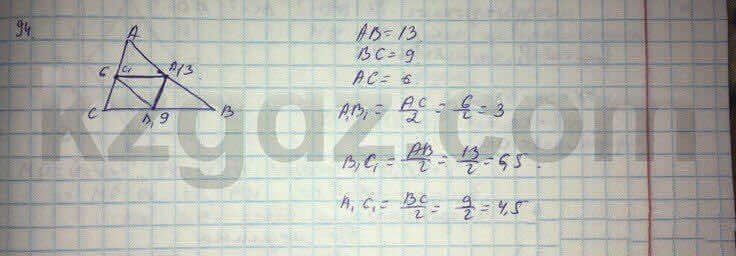 94.
A
6 C₁ A₁ 13
C B₁ 9 B
AB = 13.
BC = 9
AC = 6
A₁B₁ = AC/2 = 6/2 = 3
B₁C₁ = AB/2 = 13/2 = 6,5.
A₁C₁ = BC/2 = 9/2 = 4,5
kzgdz.com